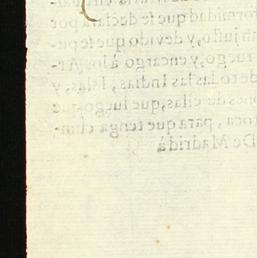 formidad que se declara por
justo, y devido que se pu-
ruego, y encargo à los Ar-
de todas las Indias, Islas, y
ones de ellas, que luego que
toca, para que tenga cum-
De Madrid à